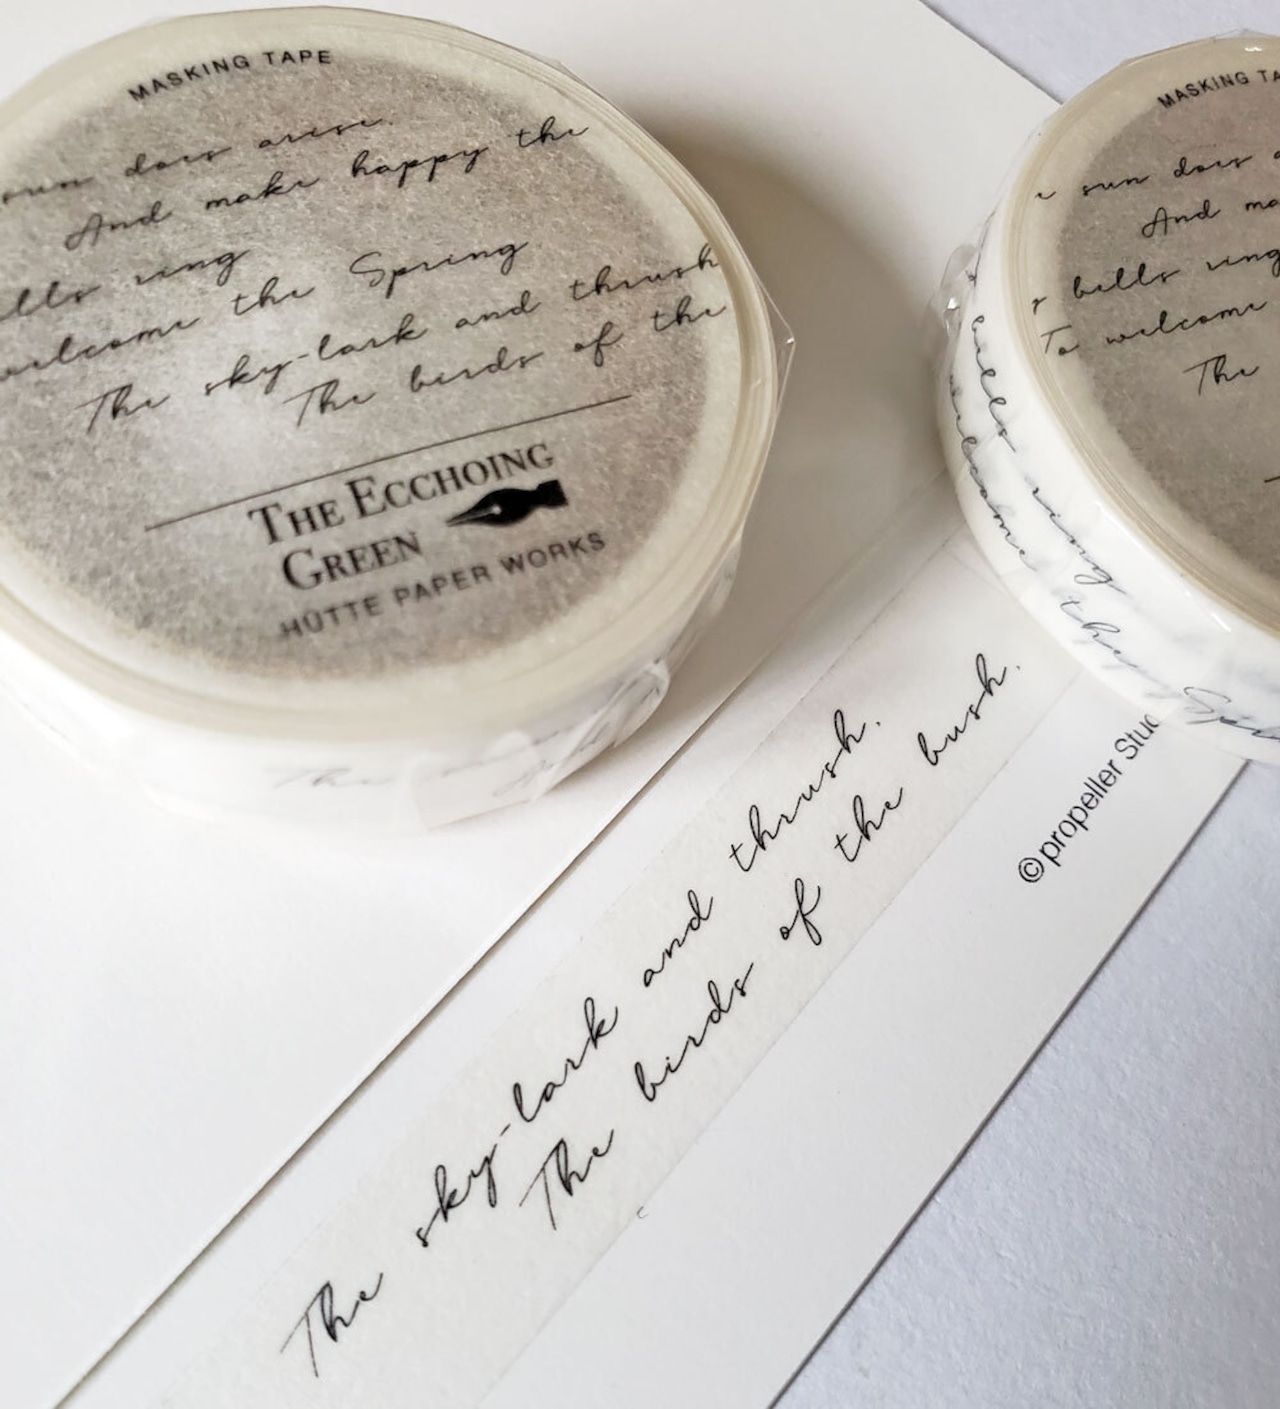 MASKING TAPE
sun does arise.
And make happy the
ells ring
welcome the Spring
The sky-lark and thrush
The birds of the
THE ECCHOING
GREEN
HÜTTE PAPER WORKS
The
MASKING TA
e sun does a
And ma
r bells ring
To welcome
The
bells ring
welcome the Spri
The sky-lark and thrush.
The birds of the bush.
©propeller Stud